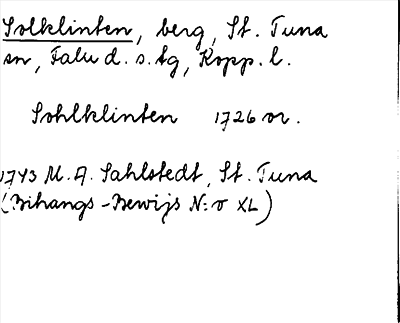 Solklinten, berg, St. Tuna
sn, Falu d. s. tg, Kopp. l.
Sohlklinten 1726 or.
1743 M. A. Sahlstedt, St. Tuna
(Bihangs-Bewijs N:o XL)